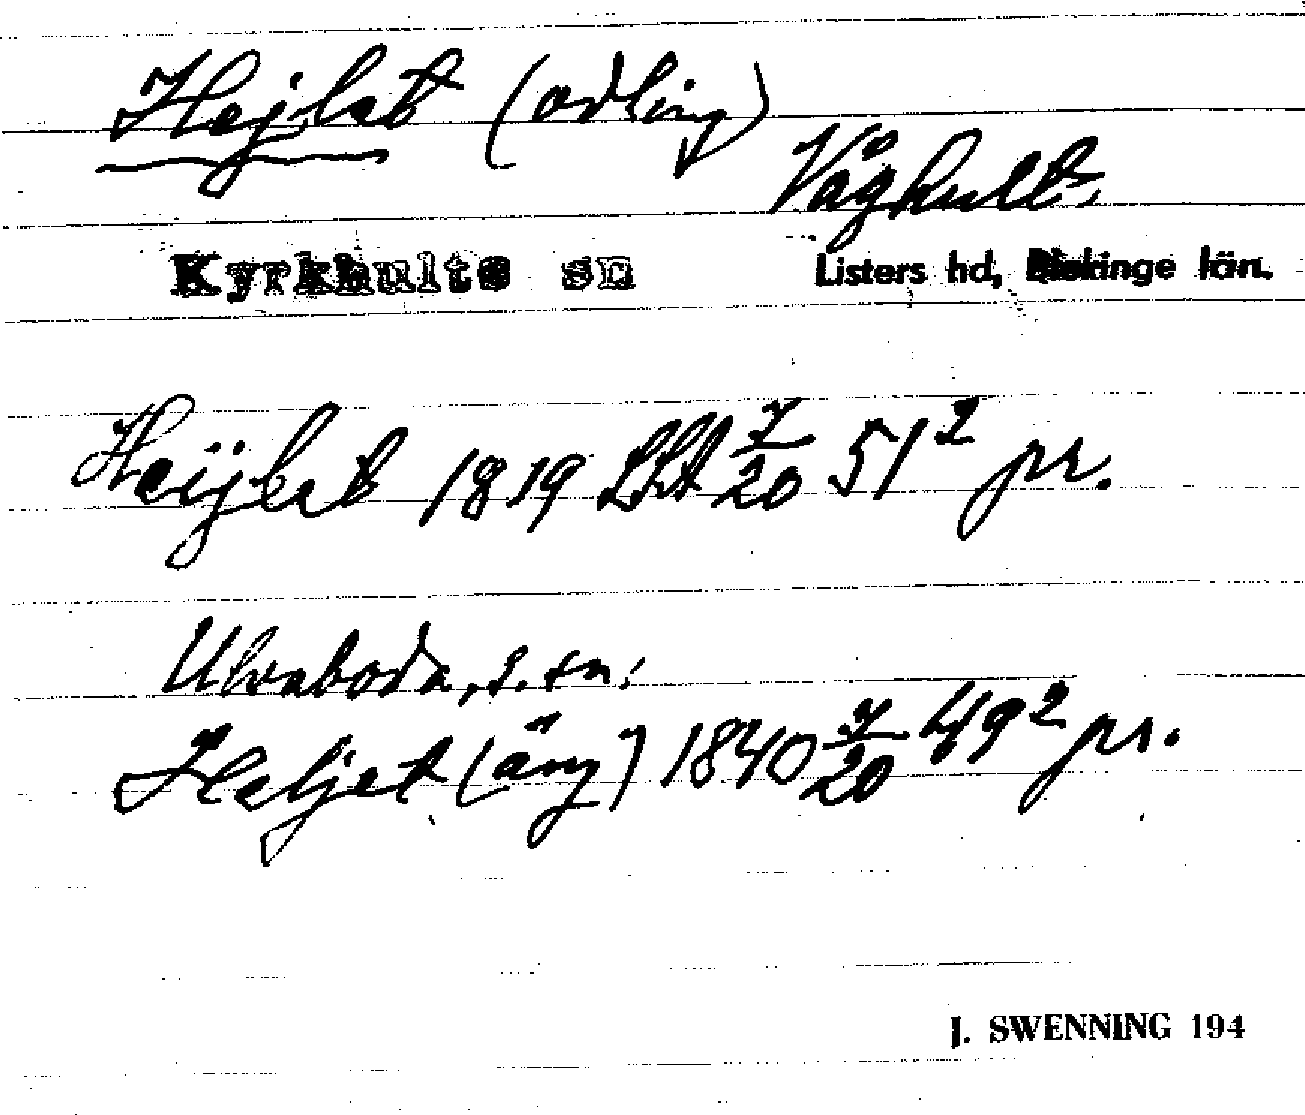 Hejlet (odling)
Våghult,
Kyrkhults sn Listers hd, Blekinge län.
Heijlet 1819 LKA 7/20 51² pr.
Ulvaboda, s. sn:
Heljet (äng) 1840 7/20 49² pr.
J. SWENNING 194